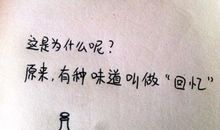 这是为什么呢？
原来，有种味道叫做“回忆”